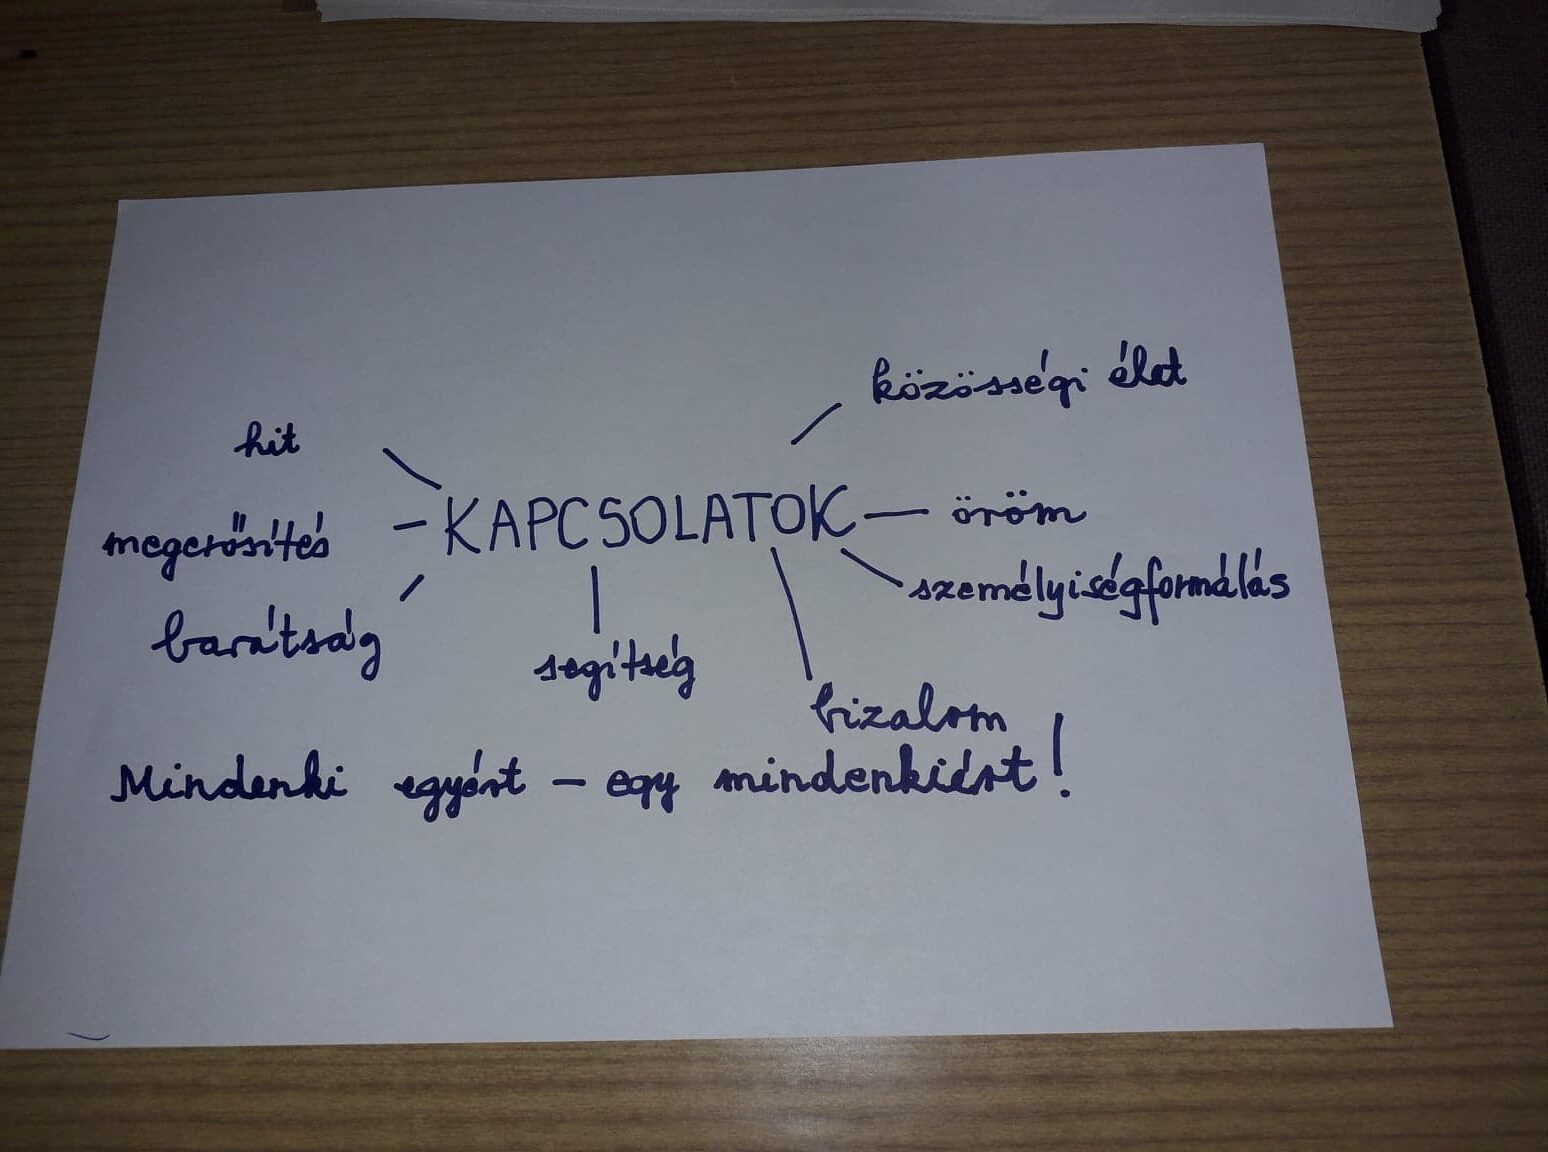 közösségi élet
hit
megerősítés
KAPCSOLATOK
öröm
személyiségformálás
barátság
segítség
bizalom
Mindenki egyért - egy mindenkiért!